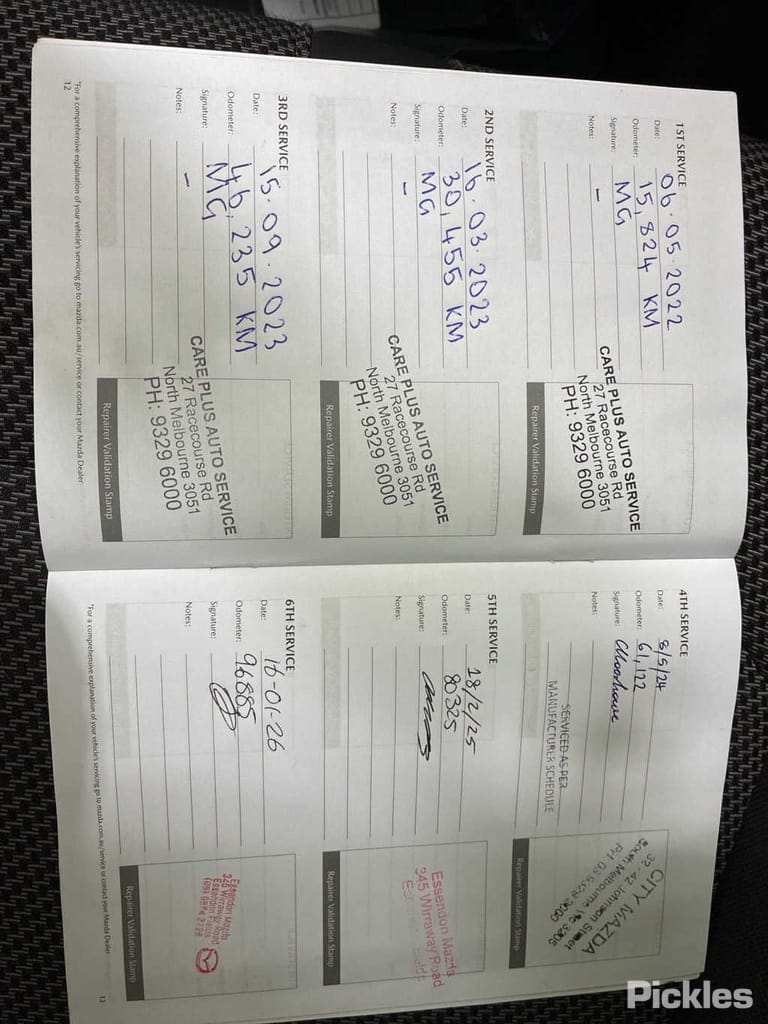 1ST SERVICE
Date: 06.05.2022
Odometer: 15,824 KM
Signature: MG
Notes: -
CARE PLUS AUTO SERVICE
27 Racecourse Rd
North Melbourne 3051
PH: 9329 6000
Repairer Validation Stamp
2ND SERVICE
Date: 16.03.2023
Odometer: 30,455 KM
Signature: MG
Notes: -
CARE PLUS AUTO SERVICE
27 Racecourse Rd
North Melbourne 3051
PH: 9329 6000
Repairer Validation Stamp
3RD SERVICE
Date: 15.09.2023
Odometer: 46,235 KM
Signature: MG
Notes: -
CARE PLUS AUTO SERVICE
27 Racecourse Rd
North Melbourne 3051
PH: 9329 6000
Repairer Validation Stamp
*For a comprehensive explanation of your vehicle's servicing go to mazda.com.au/service or contact your Mazda Dealer
12
4TH SERVICE
Date: 8/5/24
Odometer: 61,122
Signature:
Notes:
SERVICED AS PER
MANUFACTURER SCHEDULE
CITY MAZDA
32-42 Johnson Street
South Melbourne Vic 3205
Repairer Validation Stamp
5TH SERVICE
Date: 18/2/25
Odometer: 80325
Signature:
Notes:
Essendon Mazda
345 Wirraway Road
Repairer Validation Stamp
6TH SERVICE
Date: 16-01-26
Odometer: 96885
Signature:
Notes:
Essendon Mazda
345 Wirraway Road
Essendon Fields
Repairer Validation Stamp
*For a comprehensive explanation of your vehicle's servicing go to mazda.com.au/service or contact your Mazda Dealer
13
Pickles